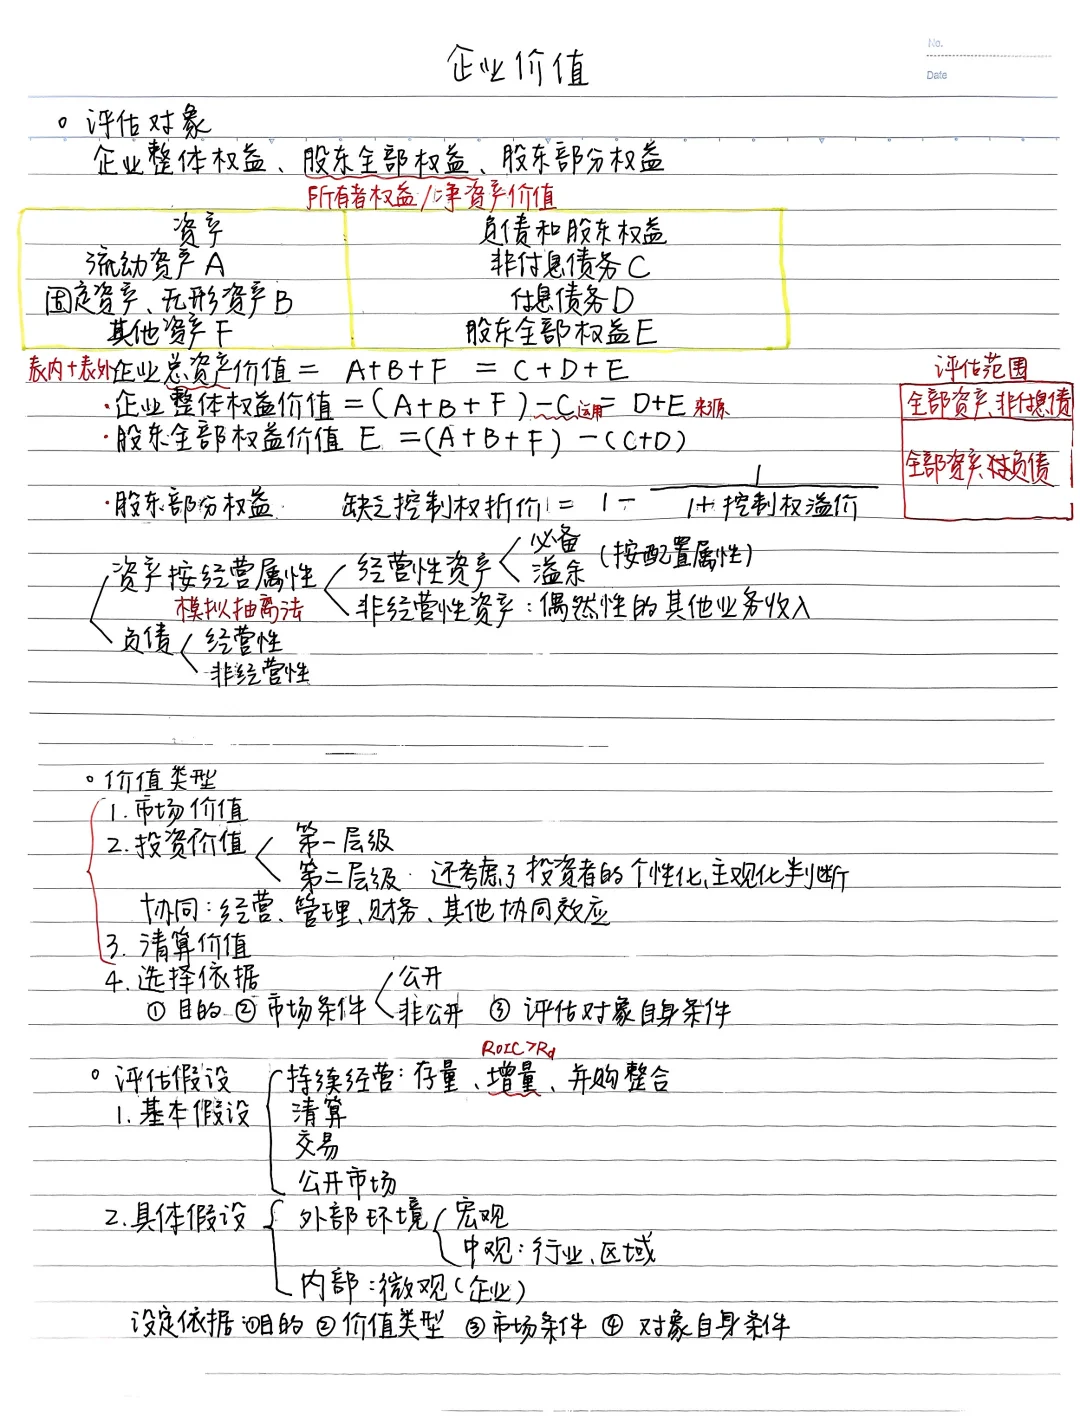 企业价值
No.
Date
。评估对象
企业整体权益、股东全部权益、股东部分权益
所有者权益/净资产价值
资产 负债和股东权益
流动资产A 非付息债务C
固定资产、无形资产B 付息债务D
其他资产F 股东全部权益E
表内+表外 企业总资产价值 = A+B+F = C+D+E
评估范围
·企业整体权益价值 =(A+B+F)-C 运用 = D+E 来源
全部资产、非付息债
·股东全部权益价值 E =(A+B+F)-(C+D)
全部资产、负债
·股东部分权益 缺乏控制权折价 = 1 - 1/1+控制权溢价
资产按经营属性 经营性资产 必备 溢余 (按配置属性)
模拟抽离法 非经营性资产:偶然性的其他业务收入
负债 经营性
非经营性
。价值类型
1.市场价值
2.投资价值 第一层级
第二层级 还考虑了投资者的个性化、主观化判断
协同:经营、管理、财务、其他协同效应
3.清算价值
4.选择依据
①目的 ②市场条件 公开 非公开 ③评估对象自身条件
ROIC>Rd
。评估假设 持续经营:存量、增量、并购整合
1.基本假设 清算
交易
公开市场
2.具体假设 外部环境 宏观
中观:行业、区域
内部:微观(企业)
设定依据 ①目的 ②价值类型 ③市场条件 ④对象自身条件